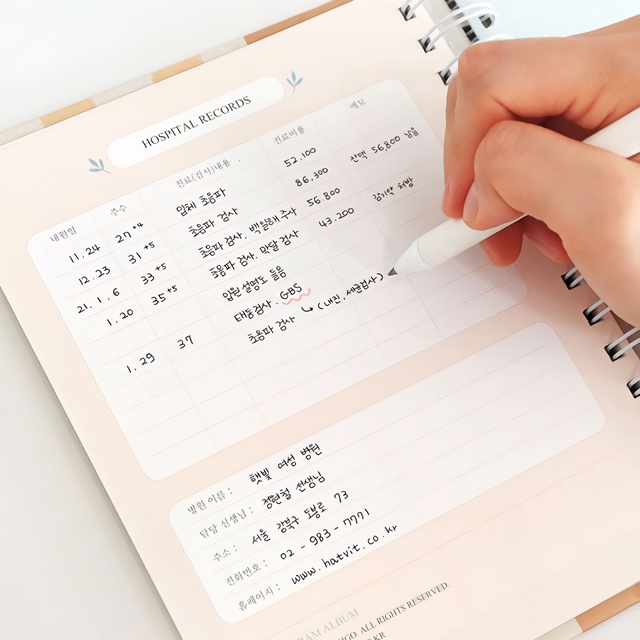 HOSPITAL RECORDS
내원일 주수 진료(검사)내용 진료비용 메모
11.24 27+4 입체 초음파 52.100 잔액 56,800 남음
12.23 31+5 초음파 검사 86.300
21.1.6 33+5 초음파 검사, 백일해 주사 56.800 감기약 처방
1.20 35+5 초음파 검사, 막달 검사 43.200
입원 설명도 들음
태동검사. GBS
1.29 37 초음파 검사 ↳ (내진, 세균검사)
병원 이름 : 햇빛 여성 병원
담당 선생님 : 정현철 선생님
주소 : 서울 강북구 도봉로 73
전화번호 : 02 - 983 - 7771
홈페이지 : www.hatvit.co.kr
RAM ALBUM
IGO. ALL RIGHTS RESERVED.
KR